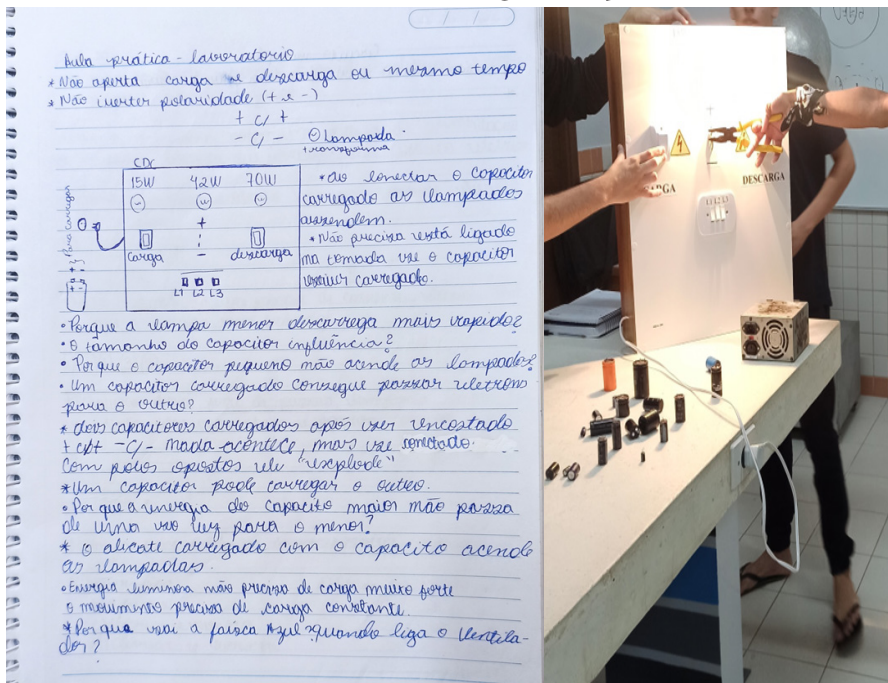 Aula prática - laboratorio
* Não aperta carga e descarga ou mesmo tempo
* Não inverter polaridade (+ e -)
+ c/ +
- c/ -
Lampada
transforma
CDC
15W 42W 70W
Para carregar
+
-
carga descarga
L1 L2 L3
* ao conectar o capacitor
carregado as lampadas
assendem.
* Não precisa está ligado
na tomada se o capacitor
estiver carregado.
• Porque a lampa menor descarrega mais rapido?
• o tamanho do capacitor influência?
• Porque o capacitor pequeno não acende as lampadas?
• Um capacitor carregado consegue passar eletrons
para o outro?
* dois capacitores carregados após ser encostado
+ c/+ - c/ - nada acontece, mais se conectado
com polos opostos ele "explode"
* Um capacitor pode carregar o outro.
• Por que a energia do capacito maior não passa
de uma so vez para o menor?
* o alicate carregado com o capacito acende
as lampadas.
• Energia luminosa não precisa de carga muito forte
o movimento precisa de carga constante.
* Por que sai a faisca Azul quando liga o ventila-
dor?
CARGA
DESCARGA
L1 L2 L3